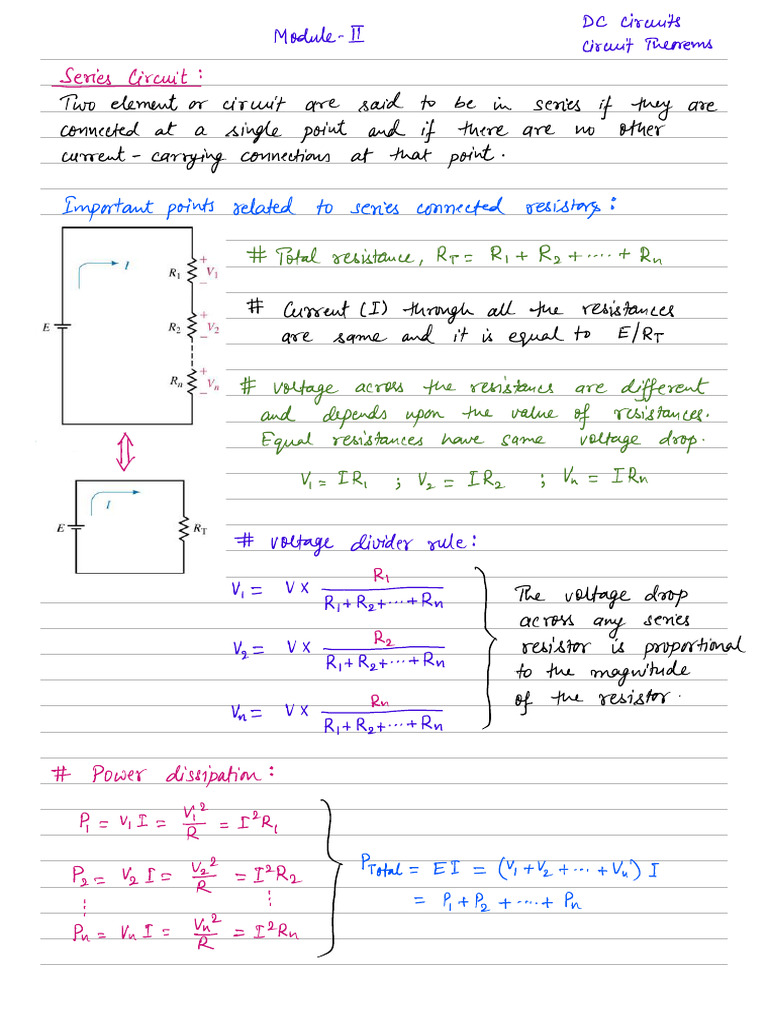 Module-II
DC Circuits
Circuit Theorems
Series Circuit:
Two element or circuit are said to be in series if they are
connected at a single point and if there are no other
current-carrying connections at that point.
Important points related to series connected resistors:
I
E
R1 + V1 -
R2 + V2 -
Rn + Vn -
# Total resistance, RT = R1 + R2 + ····· + Rn
# Current (I) through all the resistances
are same and it is equal to E/RT
# Voltage across the resistances are different
and depends upon the value of resistances.
Equal resistances have same voltage drop.
V1 = IR1 ; V2 = IR2 ; Vn = IRn
I
E
RT
# Voltage divider rule:
V1 = V × R1 / (R1+R2+···+Rn)
V2 = V × R2 / (R1+R2+···+Rn)
Vn = V × Rn / (R1+R2+···+Rn)
The voltage drop
across any series
resistor is proportional
to the magnitude
of the resistor.
# Power dissipation:
P1 = V1 I = V1²/R = I²R1
P2 = V2 I = V2²/R = I²R2
Pn = Vn I = Vn²/R = I²Rn
PTotal = EI = (V1+V2+ ··· +Vn) I
= P1+P2+ ····+ Pn